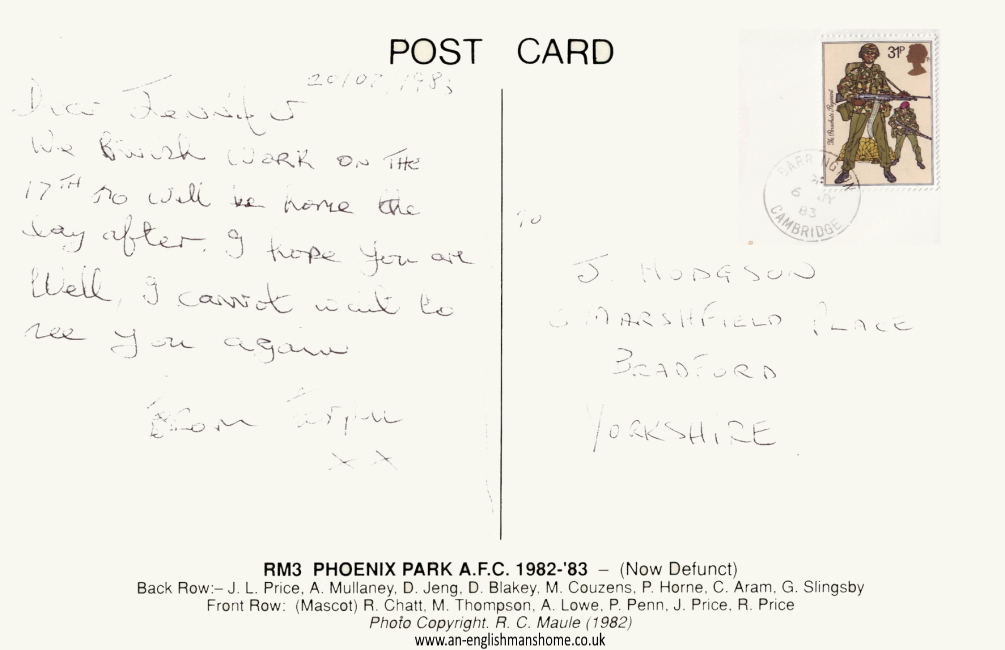 POST CARD
20/07, 1983
Dear Jennifer
We Finish WORK ON THE
17TH so will be home the
day after. I hope you are
Well, I cannot wait to
see you again
From
x x
31P
The Parachute Regiment
BARRINGTON
6 JY
83
CAMBRIDGE
TO
J. HODGSON
MARSHFIELD PLACE
BRADFORD
YORKSHIRE
RM3 PHOENIX PARK A.F.C. 1982-'83 – (Now Defunct)
Back Row:– J. L. Price, A. Mullaney, D. Jeng, D. Blakey, M. Couzens, P. Horne, C. Aram, G. Slingsby
Front Row: (Mascot) R. Chatt, M. Thompson, A. Lowe, P. Penn, J. Price, R. Price
Photo Copyright. R. C. Maule (1982)
www.an-englishmanshome.co.uk